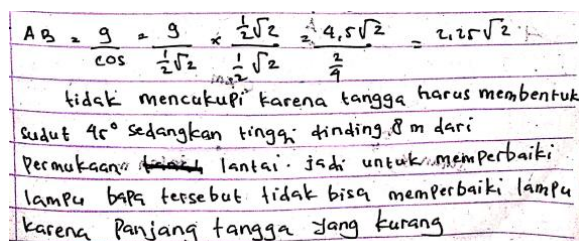 AB = 9/cos = 9/(½√2) × (½√2)/(½√2) = 4,5√2/(2/4) = 2,25√2
tidak mencukupi karena tangga harus membentuk
sudut 45° sedangkan tinggi dinding 8 m dari
permukaan lantai. jadi untuk memperbaiki
lampu bapa tersebut tidak bisa memperbaiki lampu
karena panjang tangga yang kurang